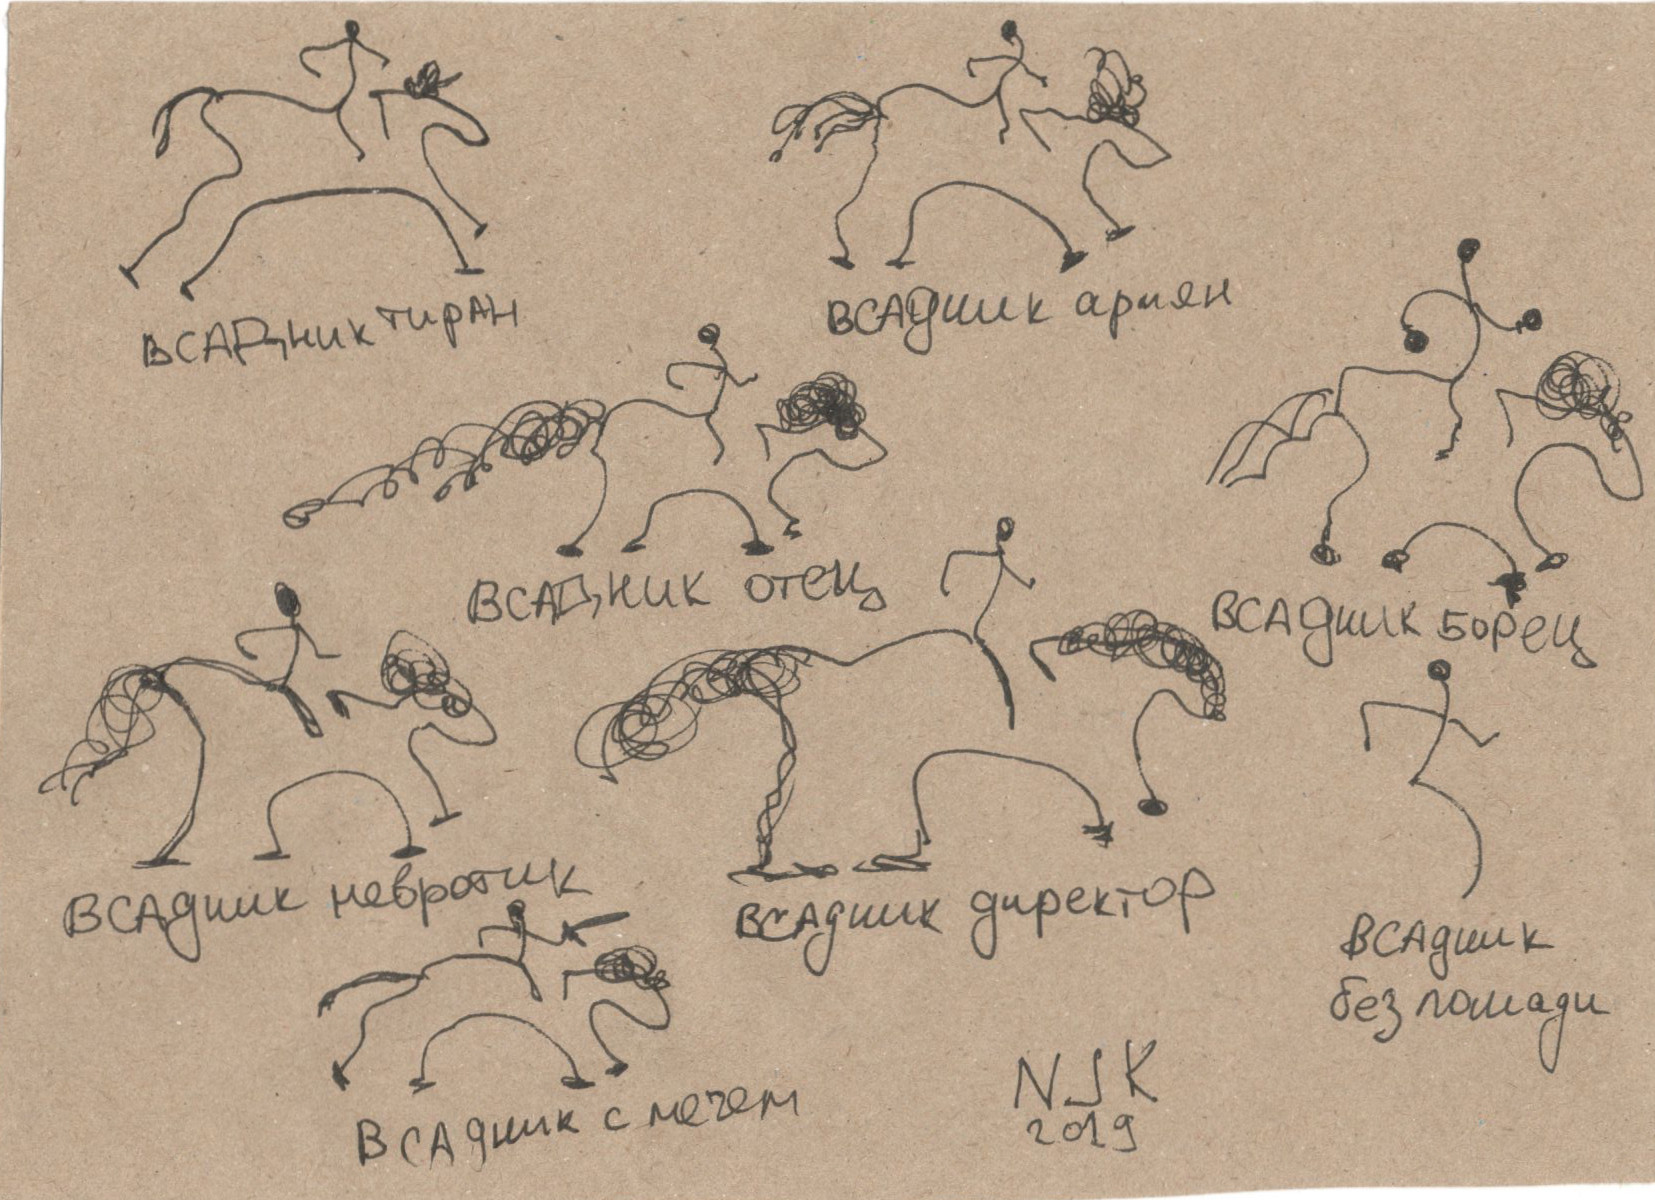 ВСАДНИК ТИРАН
ВСАДНИК ариян
ВСАДНИК ОТЕЦ
ВСАДНИК БОРЕЦ
ВСАДНИК невротик
ВСАДНИК директор
ВСАДНИК
без лошади
ВСАДНИК с мечем
NJK
2019